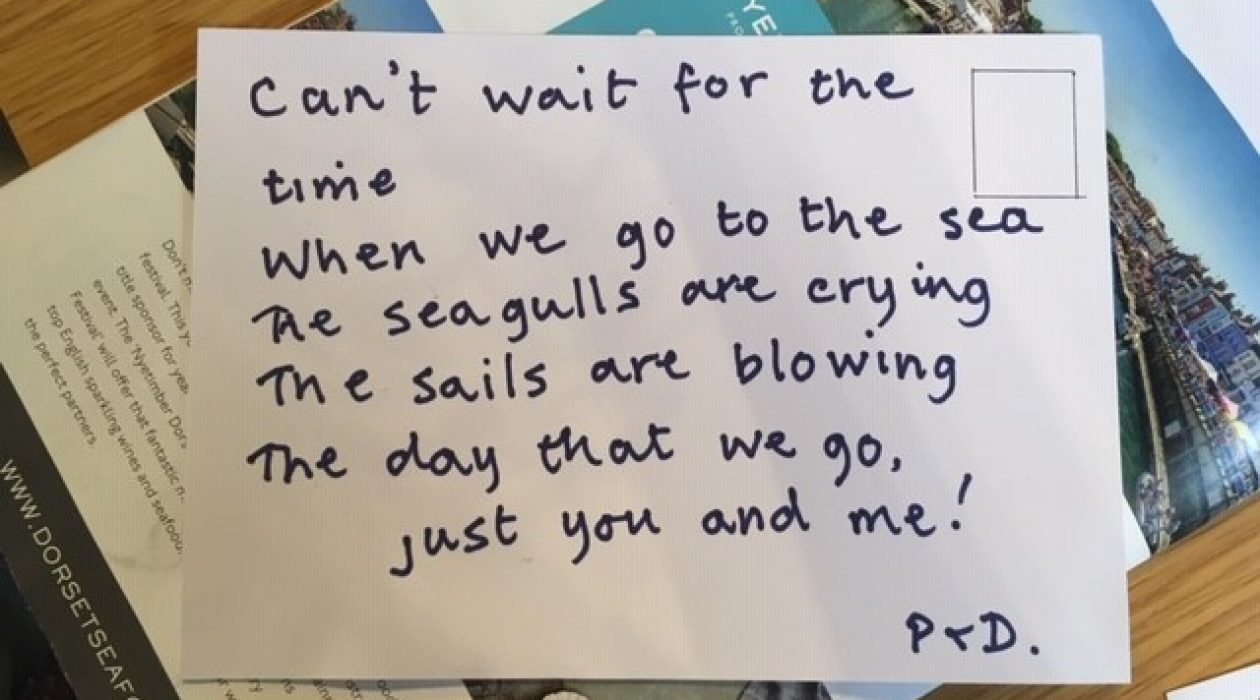 Can't wait for the
time
When we go to the sea
The seagulls are crying
The sails are blowing
The day that we go,
just you and me!
P & D.
Don't m
festival. This y
title sponsor for yea
event. The 'Nyetimber Dors
Festival' will offer that fantastic m
top English sparkling wines and seafood,
the perfect partners.
WWW.DORSETSEAF
YE